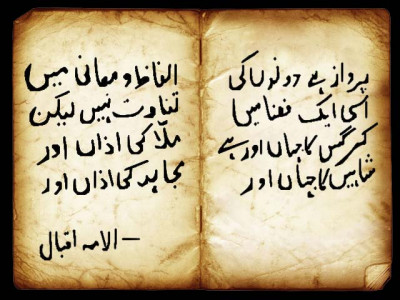 پرواز ہے دونوں کی
اسی ایک فضا میں
کرگس کا جہاں اور ہے
شاہیں کا جہاں اور
الفاظ و معانی میں
تفاوت نہیں لیکن
ملّا کی اذاں اور
مجاہد کی اذاں اور
— الامہ اقبال